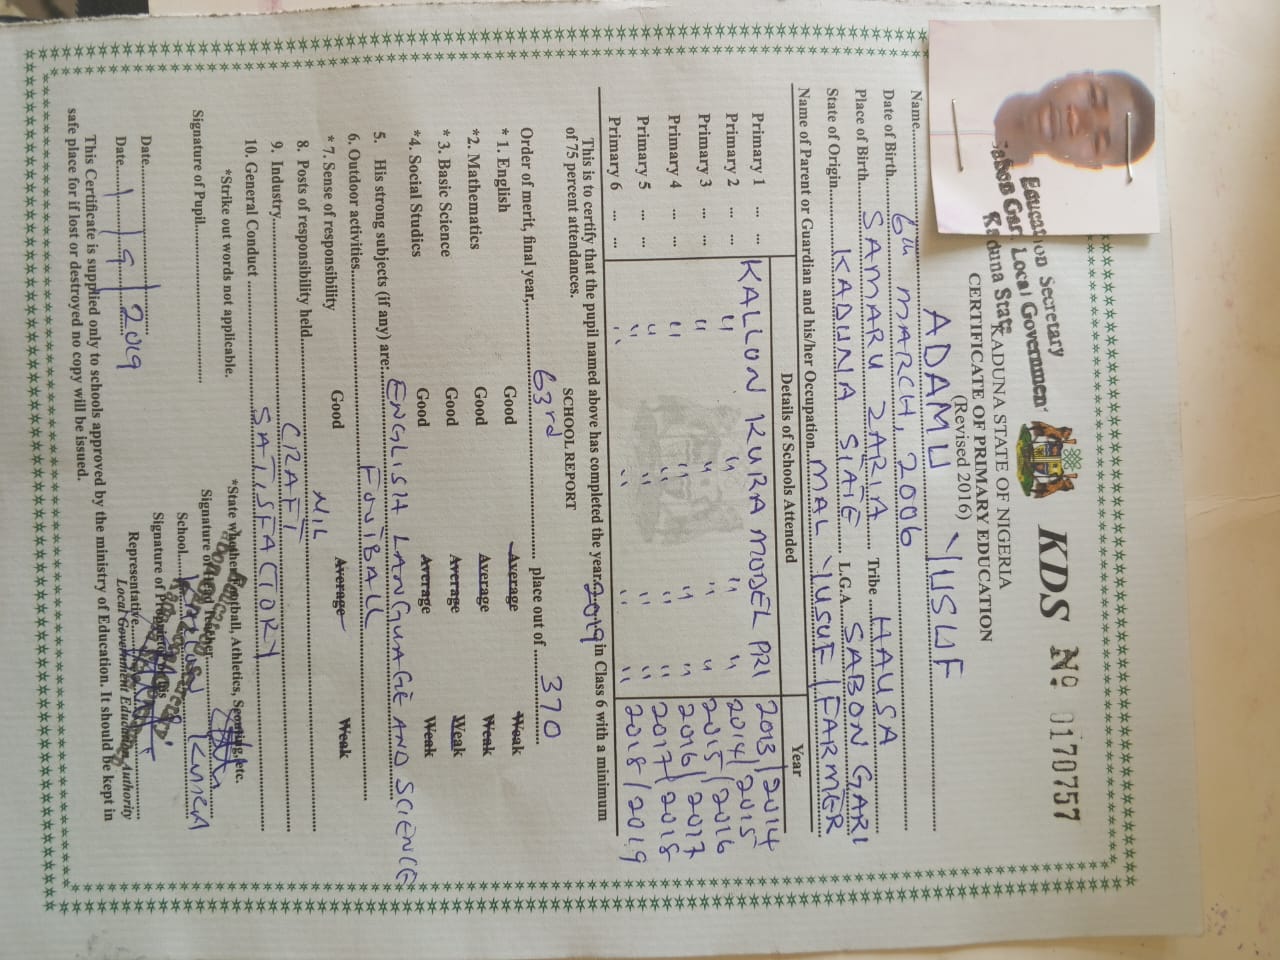 KDS Nº 0170757
Education Secretary
Local Government
Kaduna State
KADUNA STATE OF NIGERIA
CERTIFICATE OF PRIMARY EDUCATION
(Revised 2016)
Name ADAMU YUSUF
Date of Birth 6th MARCH, 2006
Place of Birth SAMARU ZARIA Tribe HAUSA
State of Origin KADUNA STATE L.G.A. SABON GARI
Name of Parent or Guardian and his/her Occupation MAL YUSUF / FARMER
Details of Schools Attended Year
Primary 1 ... ... KALLON KURA MODEL PRI 2013/2014
Primary 2 ... ... " " " " 2014/2015
Primary 3 ... ... " " " " 2015/2016
Primary 4 ... ... " " " " 2016/2017
Primary 5 ... ... " " " " 2017/2018
Primary 6 ... ... " " " " 2018/2019
This is to certify that the pupil named above has completed the year 2019 in Class 6 with a minimum
of 75 percent attendances.
SCHOOL REPORT
Order of merit, final year, 63rd place out of 370
* 1. English Good Average Weak
*2. Mathematics Good Average Weak
* 3. Basic Science Good Average Weak
*4. Social Studies Good Average Weak
5. His strong subjects (if any) are: ENGLISH LANGUAGE AND SCIENCE
6. Outdoor activities FOOTBALL
* 7. Sense of responsibility Good Average Weak
8. Posts of responsibility held NIL
9. Industry CRAFT
10. General Conduct SATISFACTORY
*Strike out words not applicable. *State whether Football, Athletics, Scouting, etc.
Signature of Pupil Signature of Head Teacher
School Kallon Kura
Date Signature of
Date 1/9/2019 Representative
Local Government Education Authority
This Certificate is supplied only to schools approved by the ministry of Education. It should be kept in
safe place for if lost or destroyed no copy will be issued.